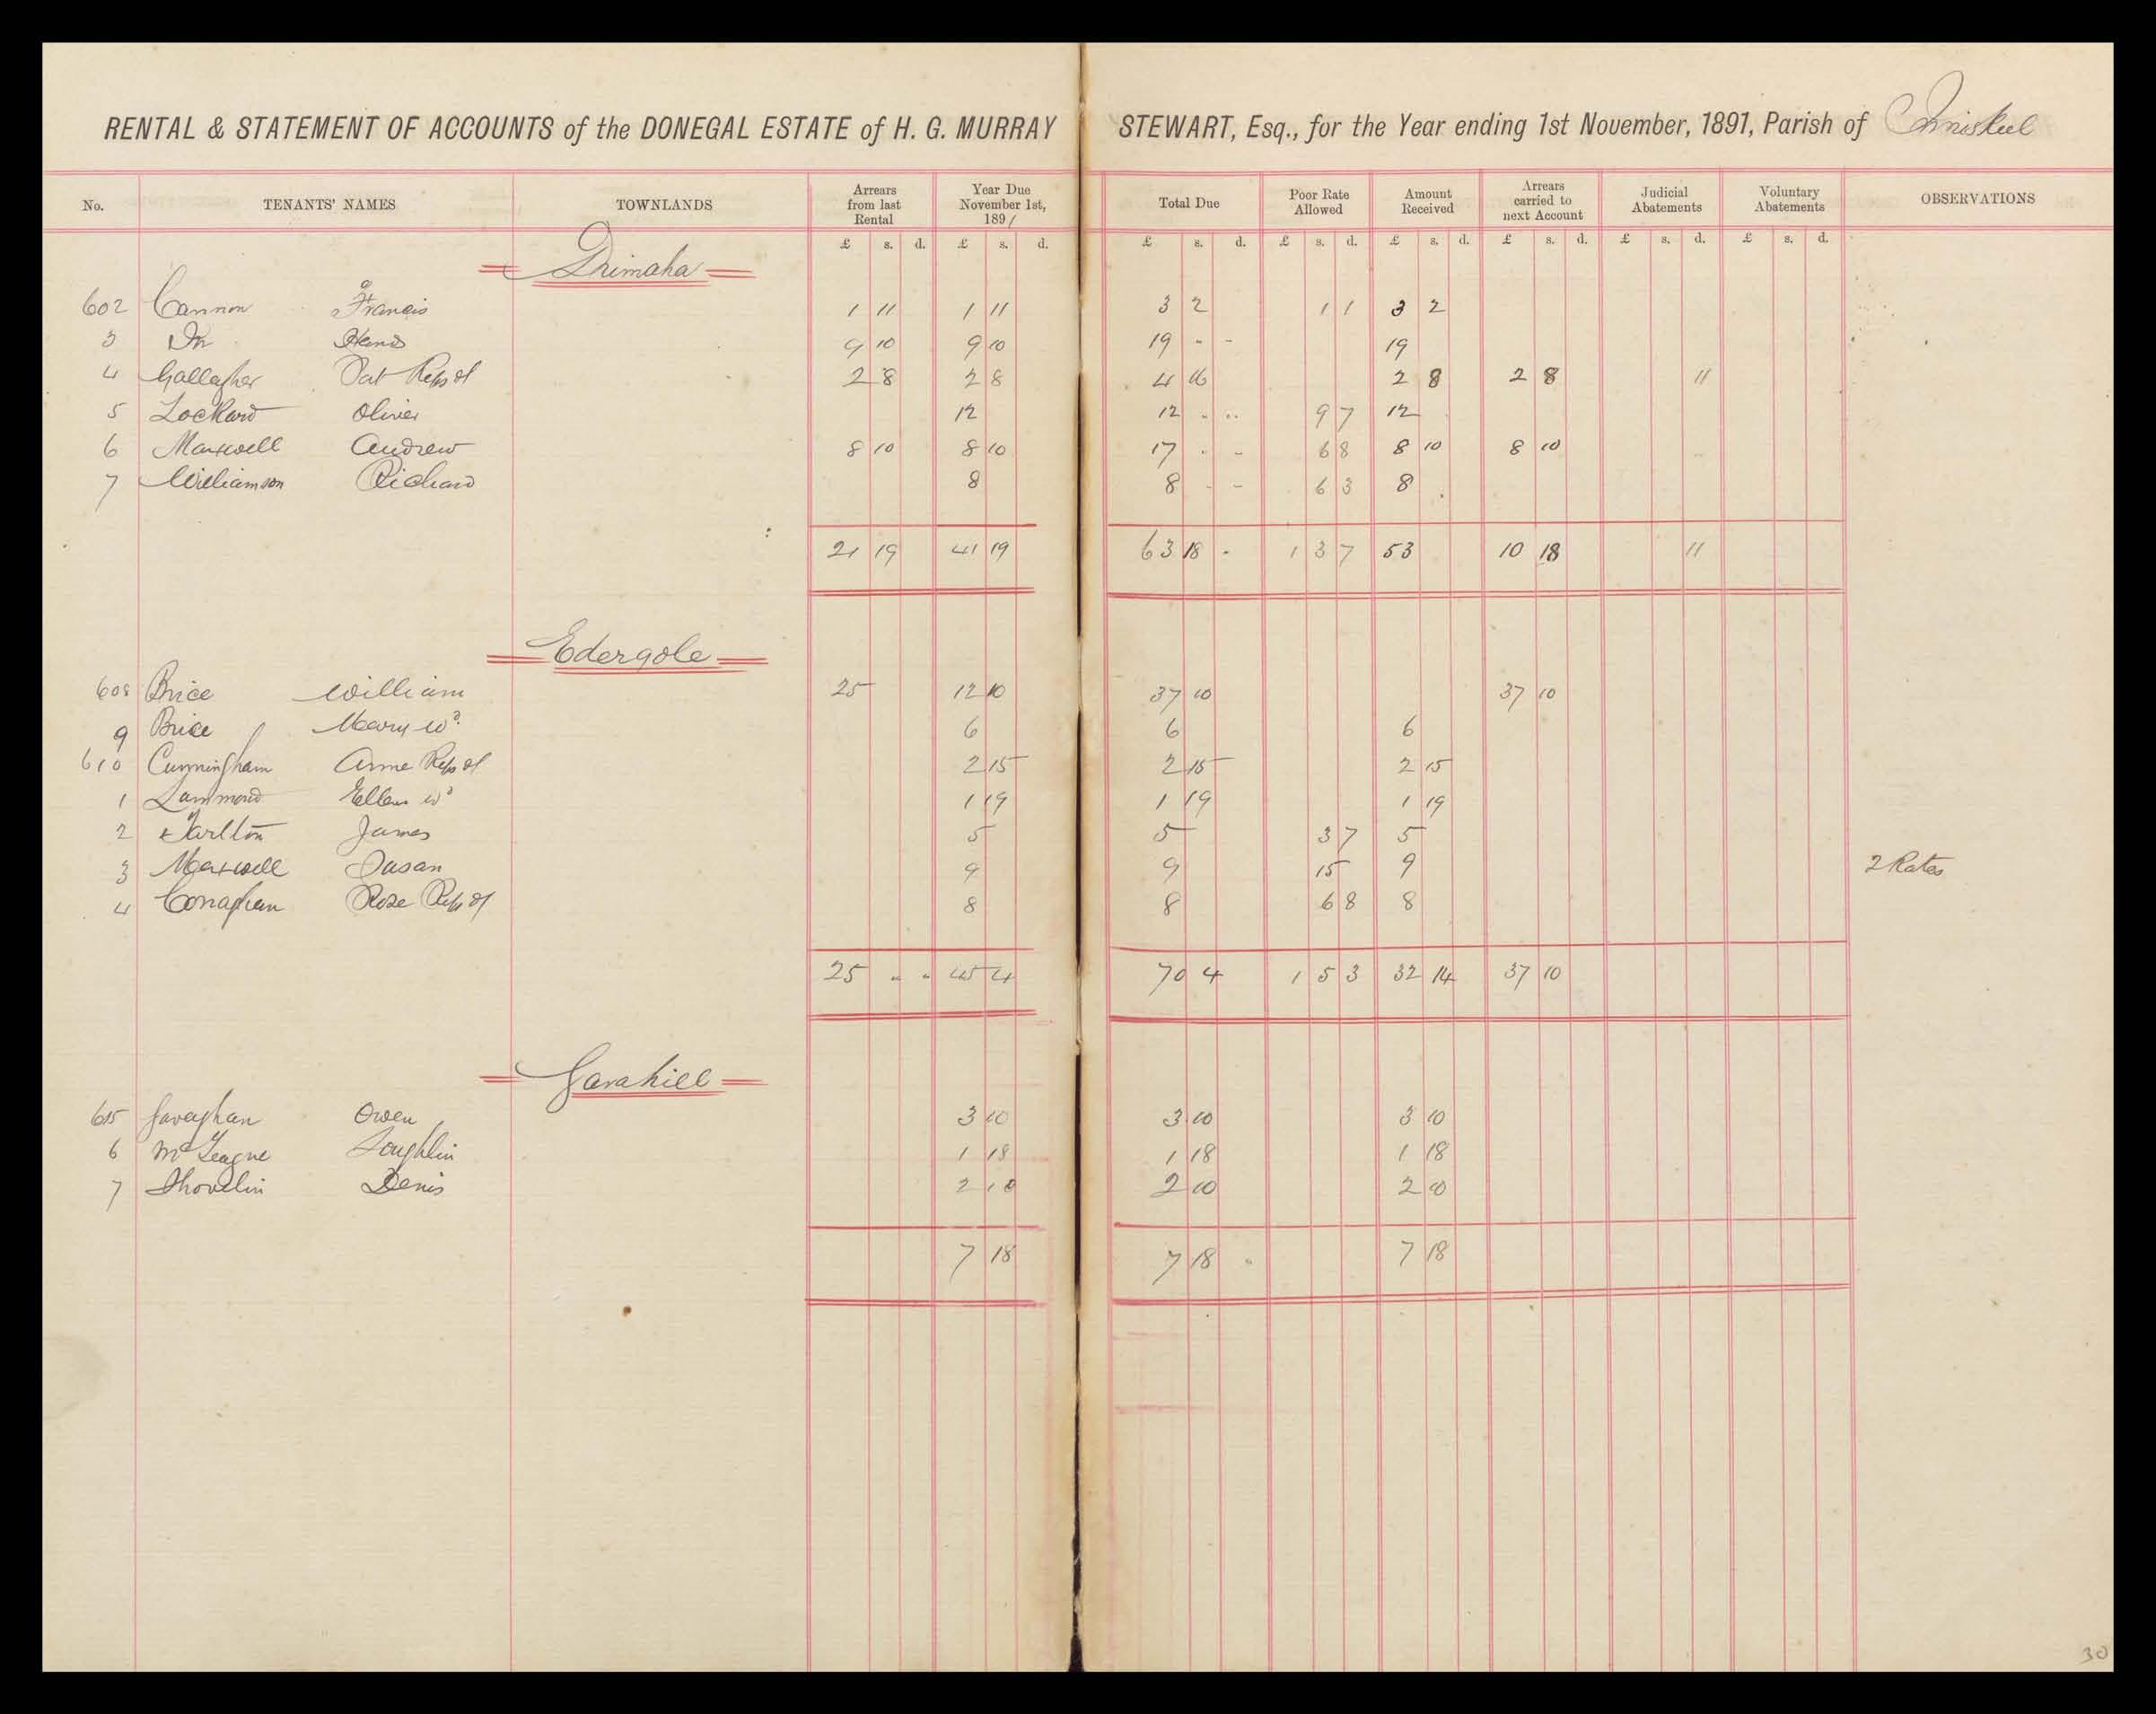 RENTAL & STATEMENT OF ACCOUNTS of the DONEGAL ESTATE of H. G. MURRAY STEWART, Esq., for the Year ending 1st November, 1891, Parish of Iniskeel
No. TENANTS' NAMES TOWNLANDS Arrears from last Rental Year Due November 1st, 1891 Total Due Poor Rate Allowed Amount Received Arrears carried to next Account Judicial Abatements Voluntary Abatements OBSERVATIONS
£ s. d. £ s. d. £ s. d. £ s. d. £ s. d. £ s. d. £ s. d. £ s. d.
Drimaha
602 Cannon Francis 1 11 1 11 3 2 1 1 3 2
3 Do 9 10 9 10 19 - - 19
4 Gallagher Pat Reps of 2 8 2 8 4 16 2 8 2 8 11
5 Lockard Oliver 12 12 - - 9 7 12
6 Maxwell Andrew 8 10 8 10 17 - - 6 8 8 10 8 10
7 Williamson Richard 8 8 - - 6 3 8
21 19 41 19 63 18 - 1 3 7 53 10 18 11
Edergole
608 Brice William 25 12 10 37 10 37 10
9 Brice Mary wd 6 6 6
610 Cunningham Anne Reps of 2 15 2 15 2 15
1 Lammond Ellen wd 1 19 1 19 1 19
2 Tarlton James 5 5 3 7 5
3 Maxwell Susan 9 9 15 9 2 Rates
4 Conaghan Rose Reps of 8 8 6 8 8
25 - - 45 4 70 4 1 5 3 32 14 37 10
Garahill
615 Gavaghan Owen 3 10 3 10 3 10
6 McTeague Loughlin 1 18 1 18 1 18
7 Shovelin Denis 2 10 2 10 2 10
7 18 7 18 - 7 18
30